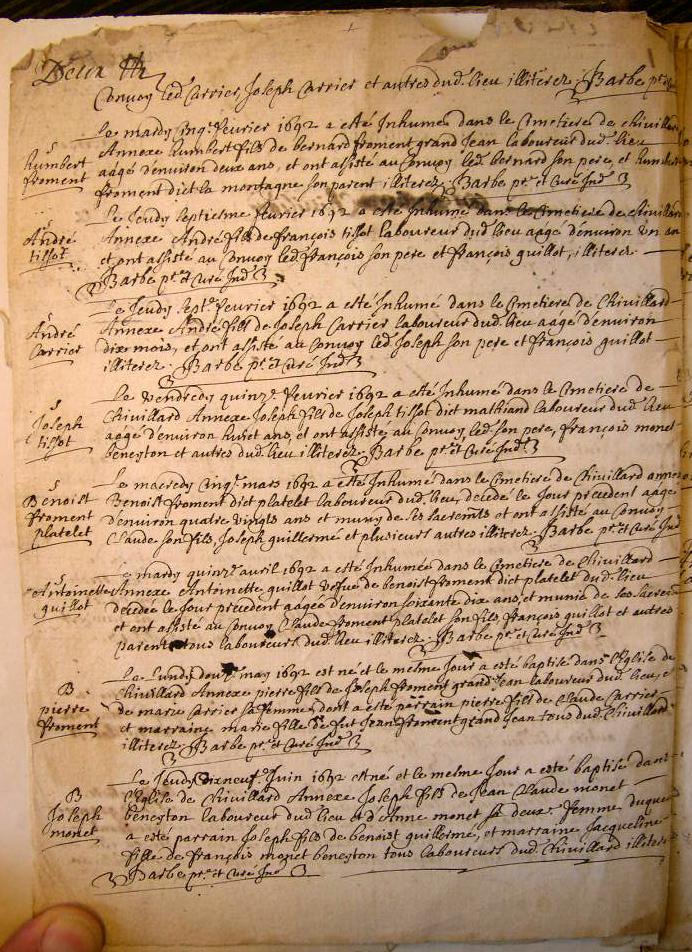 Deux
Convoy led. Carrier, Joseph Carrier et autres dud. lieu illiterez. Barbe ptre
Le mardy cinqe. fevrier 1692 a esté Inhumé dans le Cimetiere de chivillard
S
humbert
froment
Annexe humbert fils de bernard froment grand Jean laboureur dud. lieu
aagé d'environ deux ans, et ont assisté au Convoy led. bernard son pere, et humbert
froment dict la montagne son parent illiterez. Barbe ptre. et Curé Ind.
S
André
tissot
Le Jeudy septiesme fevrier 1692 a esté Inhumé dans le Cimetiere de chivillard
Annexe André fils de françois tissot laboureur dud. lieu aagé d'environ un an
et ont assisté au Convoy led. françois son pere et françois guillot, illiterez.
Barbe ptre. et Curé Ind.
S
André
Carrier
Le Jeudy septe. fevrier 1692 a esté Inhumé dans le Cimetiere de Chivillard
Annexe André fils de Joseph Carrier laboureur dud. lieu aagé d'environ
dix mois, et ont assisté au Convoy led. Joseph son pere et françois guillot
illiterez. Barbe ptre. et Curé Ind.
S
Joseph
tissot
Le vendredy quinze. fevrier 1692 a esté Inhumé dans le Cimetiere de
Chivillard Annexe Joseph fils de Joseph tissot dict mathiand laboureur dud. lieu
aagé d'environ huict ans, et ont assisté au Convoy led. son pere, françois monet
beneyton et autres dud. lieu illiterez. Barbe ptre. et Curé Ind.
S
Benoist
froment
platelet
Le macredy cinqe. mars 1692 a esté Inhumé dans le Cimetiere de Chivillard annexe
Benoist froment dict platelet laboureur dud. lieu, decedé le Jour precedent aagé
d'environ quatre vingts ans et muny de ses sacremts et ont assisté au Convoy
Claude son fils, Joseph guillerme et plusieurs autres illiterez. Barbe ptre. et Curé Ind.
S
Antoinette
guillot
Le mardy quinze. avril 1692 a esté Inhumée dans le Cimetiere de Chivillard
Annexe Antoinette guillot vefue de benoist froment dict platelet dud. lieu
decedée le Jour precedent aagée d'environ soixante dix ans, et munie de ses Sacrem
et ont assisté au Convoy Claude froment platelet son fils, françois guillot et autres
parents tous laboureurs dud. lieu illiterez. Barbe ptre. et Curé Ind.
B
pierre
froment
Le Lundy may 1692 est né et le mesme Jour a esté baptisé dans l'Eglise de
Chivillard Annexe pierre fils de Joseph froment grand Jean laboureur dud. lieu, et
de marie Carrier sa femme, dont a esté parrain pierre fils de Claude Carrier
et marraine marie fille de fut Jean froment grand Jean tous dud. Chivillard
illiterez. Barbe ptre. et Curé Ind.
B
Joseph
monet
Le Jeudy dixneufe. Juin 1692 est né et le mesme Jour a esté baptisé dans
l'Eglise de Chivillard Annexe Joseph fils de Jean Claude monet
beneyton laboureur dud. lieu et d'Anne monet sa femme duquel
a esté parrain Joseph fils de benoist guillerme, et marraine Jacqueline
fille de françois monet beneyton tous laboureurs dud. Chivillard illiterez
Barbe ptre. et Curé Ind.